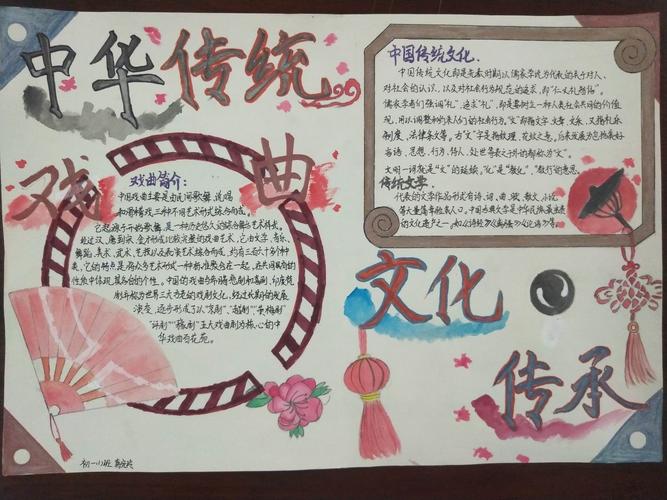 中华传统
戏曲
戏曲简介:
中国戏曲主要是由民间歌舞、说唱
和滑稽戏三种不同艺术形式综合而成。
它起源于原始歌舞,是一种历史悠久的综合舞台艺术样式。
经过汉、唐到宋、金才形成比较完整的戏曲艺术,它由文学、音乐、
舞蹈、美术、武术、杂技以及表演艺术综合而成,约有三百六十多个种
类。它的特点是将众多艺术形式以一种标准聚合在一起,在共同具有的
性质中体现其各自的个性。中国的戏曲与希腊悲剧和喜剧、印度梵
剧并称为世界三大古老的戏剧文化,经过长期的发展
演变,逐步形成了以“京剧”“越剧”“黄梅戏”
“评剧”“豫剧”五大戏曲剧种为核心的中
华戏曲百花苑。
中国传统文化.
中国传统文化即是先秦时期以儒家学说为代表的关于对人、
对社会的认识,以及对社会行为规范的追求,即“仁义礼智信”。
儒家学者们强调“礼”,追求“礼”,即是要树立一种人类社会共同的价值
观,用以调整和约束人们的社会行为。“文”即指文字、文章、文采,又指礼乐
制度、法律条文等。古“文”字是指纹理、花纹之意。后来发展为包括美好
言语、思想、行为、待人、处世等表之于外的都称为“文”。
文明一词就是“文”的延续,“化”是“教化”、“教行”的意思。
传统文学
代表的文学作品形式有诗、词、曲、赋、散文、小说
等大量篇章脍炙人口。中国古典文学是中华民族最出色
的文化遗产之一。如《诗经》《离骚》《史记》等。
文化
传承
初一